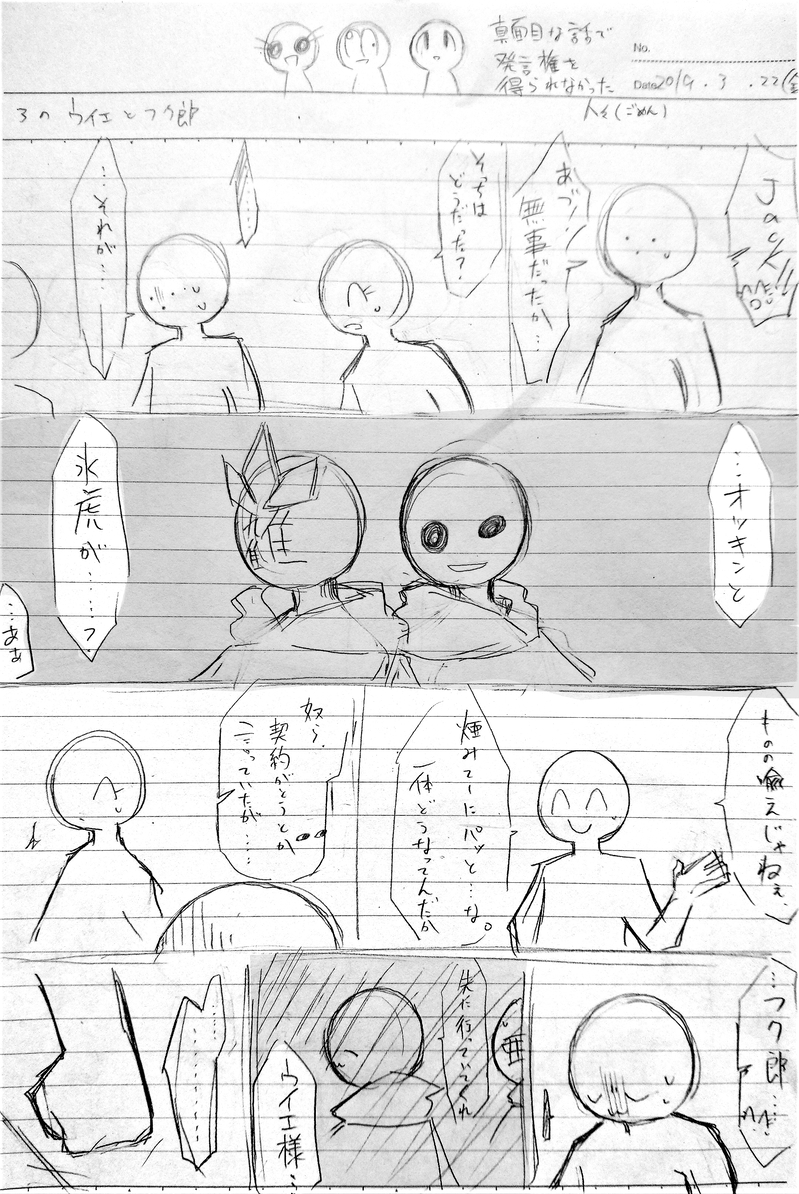 真面目な話で
発言権を
得られなかった
人々(ごめん)
No.
Date 2019 . 3 . 22(金
3の ウイエとフク郎
Jack!!
あづ!!
無事だったか…
そっちは
どうだった?
………
…それが…
…オッキンと
氷虎が……?
…あぁ
ものの喩えじゃねぇ、
煙みてーにパッと…な。
一体どうなってんだか
奴ら、
契約がどうとか
言っていたが……
…フク郎…
先に行っていてくれ
ウイエ様…
…………